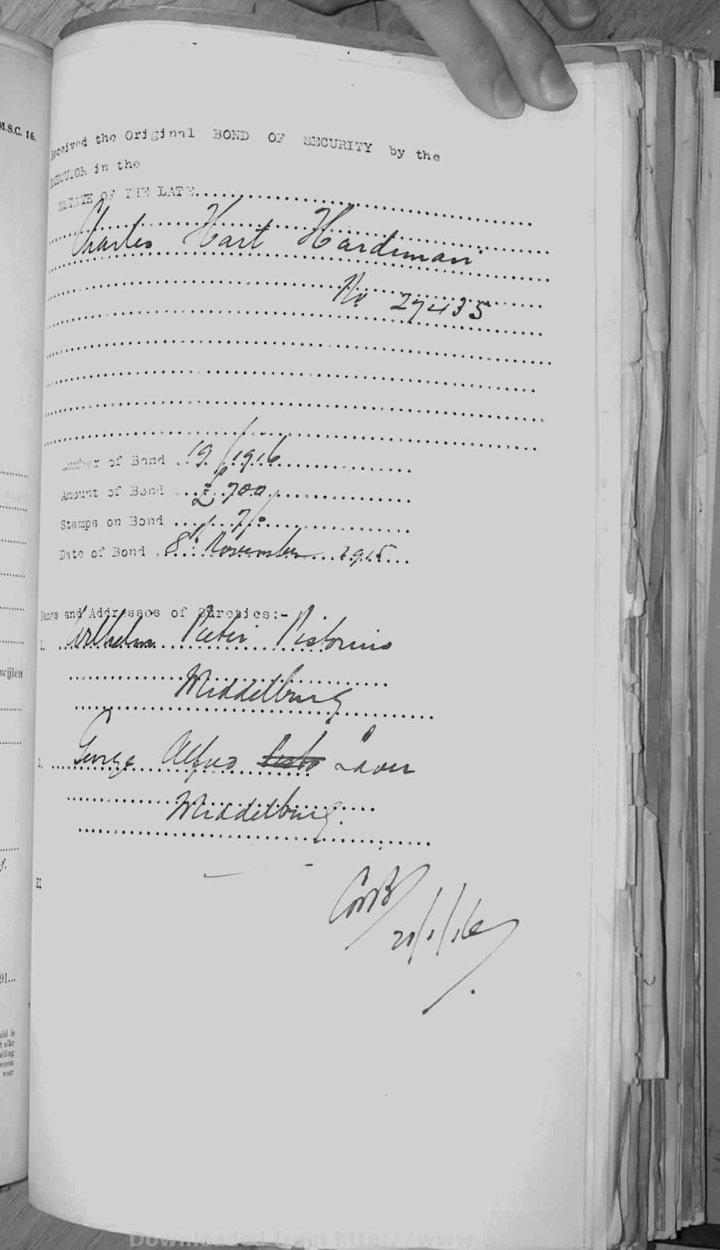 M.S.C. 16.
Received the Original BOND OF SECURITY by the
EXECUTOR in the
ESTATE OF THE LATE
Charles Hart Hardiman
No 27435
Number of Bond 19/1916
Amount of Bond £700
Stamps on Bond 7/-
Date of Bond 8th November 1915
Names and Addresses of Sureties:-
1. Wilhelm Pieter Pistorius
Middelburg
George Alfred Laver
Middelburg.
21/1/16
wijlen